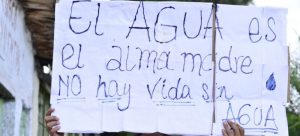 El AGUA es
el alma madre
NO hay vida sin
AGUA